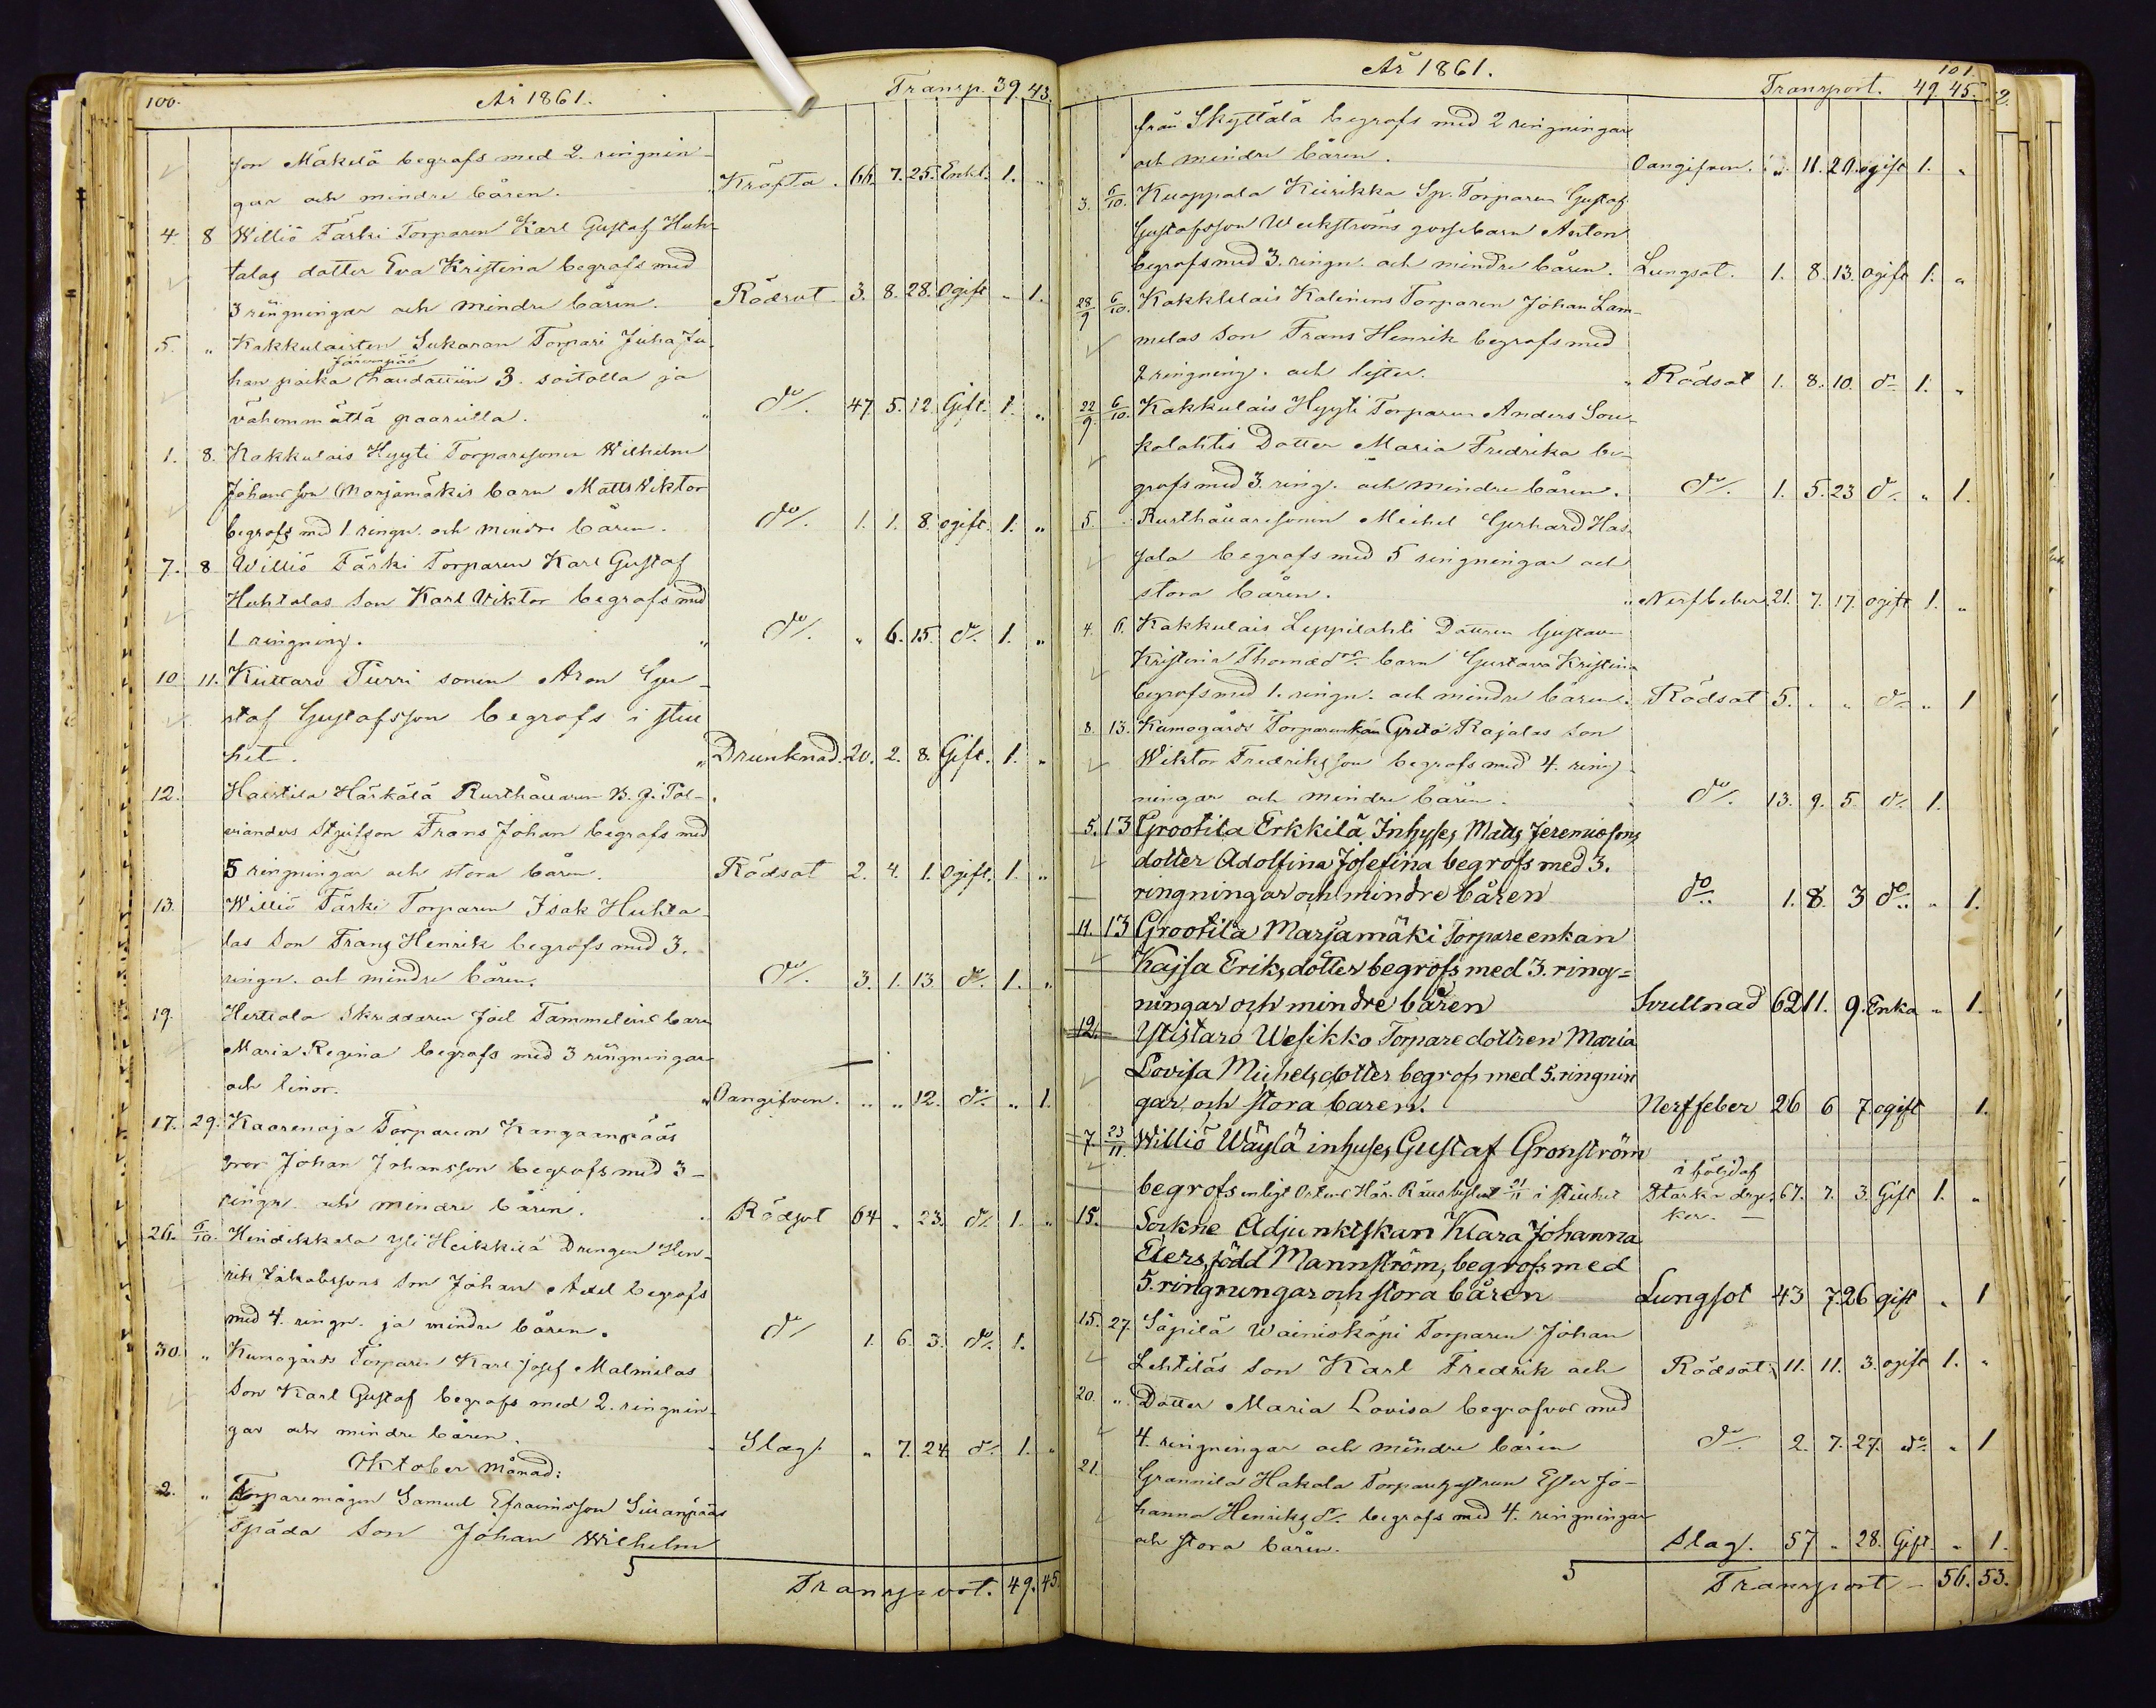 100. År 1861. Transp. 39. 43.
Jon Mäkelä begrafs med 2. ringnin-
gar och mindre båren. Kräfta. 66. 7. 25. Enkl. 1. „
4. 8 Williö Färki Torparen Karl Gustaf Huh-
talas dotter Eva Kristina begrafs med
3 ringningar och mindre båren. Rödsot 3. 8. 28. Ogift „ 1.
5. „ Kakkulaisten Sukaran Torpari Juha Ju-
Järvenpää
han poika haudattiin 3. soitolla ja
vähemmältä paarilla. do/. 47. 5. 12. Gift. 1. „
1. 8. Kakkulais Hyyti Torparesonen Wilhelm
Johansson Marjamäkis barn Matts Wiktor
begrafs med 1 ringn. och mindre båren. do/. 1. 1. 8. ogift. 1. „
7. 8 Williö Färki Torparen Karl Gustaf
Huhtalas Son Karl Wiktor begrafs med
1 ringning. do/. „ 6. 15. do/. 1. „
10 11. Kiettare Pierri sonen Aron Gu-
staf Gustafsson begrafs i stil-
het. Drunknad. 20. 2. 8. Gift. 1. „
12. Haistila Härkälä Rusthållaren B. J. Pal-
erianders Styfson Frans Johan begrafs med
5 ringningar och stora båren. Rödsot 2. 4. 1. Ogift. 1. „
13. Williö Färki Torparen Isak Huhta-
las Son Frans Henrik begrafs med 3.
ringn. och mindre båren. do/. 3. 1. 13 do. 1. „
19. Herteola Skräddaren Joel Tammelins barn
Maria Regina begrafs med 3 ringningar
och linor. „ Oangifven. „ „ 12. do. „ 1.
17. 29. Kaarenoja Torparen Kangaanpääs
bror Johan Johansson begrafs med 3-
ringn. och mindre båren. Rödsot 64 „ 23. do. 1. „
26. 6/10. Hindikkala Yli Heikkilä Drengen Hen-
rik Jakobssons Son Johan Axel begrafs
med 4. ringn. ja mindre båren. do/. 1. 6. 3. do. 1.
30. „ Kumogårds Torparen Karl Josef Malmilas
Son Karl Gustaf begrafs med 2. ringnin-
gar och mindre båren. Slag. „ 7. 24. do. 1. „
Oktober Månad:
2. „ Torparemågen Samuel Efraimsson Siuanpääs
späda Son Johan Wilhelm
5
Transport. 49. 45.
År 1861. 101.
Transport. 49. 45.
från Skyttälä begrafs med 2 ringningar
och mindre båren. Oangifven. „ 11. 20. ogift 1. „
3. 6/10. Kuoppala Kiirikka Sp. Torparen Gustaf
Gustafsson Weckströms gossebarn Anton
begrafs med 3. ringn. och mindre båren. Lungsot. 1. 8. 13. Ogift 1. „
28/9 6/10. Kakkulais Kalinens Torparen Johan Lam-
melas Son Frans Henrik begrafs med
2 ringning. och lister. Rödsot 1. 8. 10. do. 1. „
22/9. 6/10. Kakkulais Hyyti Torparen Anders Sou-
kolahtis Dotter Maria Fredrika be-
grafs med 3. ring. och mindre båren. do/. 1. 5. 23 do/. „ 1.
5. Rusthållaresonen Michel Gerhard Has-
jala begrafs med 5 ringningar och
stora båren. „ Nerffeber 21. 7. 17. ogift 1. „
4. 6. Kakkulais Leppilahti Dottren Gustava
Kristina Thomædr. barn Gustava Kristina
begrafs med 1. ringn. och mindre båren. Rödsot 5. „ „ do. „ 1
8. 13. Kumogårds Torparenkan Greta Rajalas Son
Wiktor Fredriksson begrafs med 4. ring-
ningar och mindre båren. do/. 13. 9. 5. do. 1.
5. 13 Grootila Erkkilä Inhyses Matts Jeremiæsons
dotter Adolfina Josefina begrofs med 3.
ringningar och mindre båren do. 1. 8. 3 do. „ 1.
11. 13 Grootila Marjamäki Torpareenkan
Kajsa Eriksdotter begrofs med 3. ring=
ningar och mindre båren Svullnad 62 11. 9. Enka „ 1.
12. Ylistaro Wesikko Torparedottren Maria
Lovisa Michelsdotter begrofs med 5. ringnin
gar och stora baren. Nerffeber 26 6 7 ogift 1.
7. 23/11. Williö Wäylä inhyses Gustaf Gronström
begrofs enligt Härads Räns beslut 21/11 i stillhet i följd af Starka dryc- 67. 7. 3. Gift 1. „
ker.
15. Sockne Adjunktskan Klara Johanna
Elers, född Mannström, begrofs med
5. ringningar och stora båren Lungsot 43 7. 26 gift „ 1
15. 27. Säpilä Wainiokäpi Torparen Johan
Lehtiläs Son Karl Fredrik och Rödsot. 11. 11. 3. ogift 1. „
20. „ Dotter Maria Lovisa begrofvos med
4. ringningar och mindre båren do. 2. 7. 27. do. „ 1
21. Grannila Hakala Torparehustrun Ester Jo-
hanna Henriks dr. begrafs med 4. ringningar
och stora båren. Slag. 57 „ 28. Gift. „ 1.
5
Transport - 56. 53.